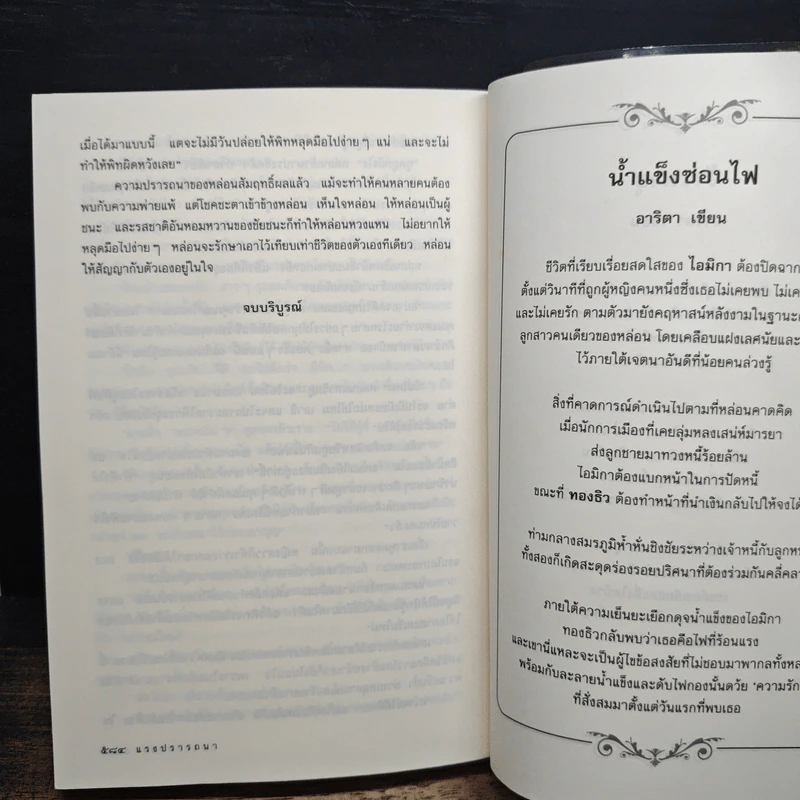 เมื่อได้มาแบบนี้ แตจะไม่มีวันปล่อยให้พิทหลุดมือไปง่ายๆ แน่ และจะไม่
ทำให้พิทผิดหวังเลย"
ความปรารถนาของหล่อนสัมฤทธิ์ผลแล้ว แม้จะทำให้คนหลายคนต้อง
พบกับความพ่ายแพ้ แต่โชคชะตาเข้าข้างหล่อน เห็นใจหล่อน ให้หล่อนเป็นผู้
ชนะ และรสชาติอันหอมหวานของชัยชนะก็ทำให้หล่อนหวงแหน ไม่อยากให้
หลุดมือไปง่ายๆ หล่อนจะรักษาเอาไว้เทียบเท่าชีวิตของตัวเองทีเดียว หล่อน
ให้สัญญากับตัวเองอยู่ในใจ
จบบริบูรณ์
๕๘๔ แรงปรารถนา
น้ำแข็งซ่อนไฟ
อาริตา เขียน
ชีวิตที่เรียบเรื่อยสดใสของ ไอมิกา ต้องปิดฉาก
ตั้งแต่วินาทีที่ถูกผู้หญิงคนหนึ่งซึ่งเธอไม่เคยพบ ไม่เค
และไม่เคยรัก ตามตัวมายังคฤหาสน์หลังงามในฐานะ
ลูกสาวคนเดียวของหล่อน โดยเคลือบแฝงเลศนัยและ
ไว้ภายใต้เจตนาอันดีที่น้อยคนล่วงรู้
สิ่งที่คาดการณ์ดำเนินไปตามที่หล่อนคาดคิด
เมื่อนักการเมืองที่เคยลุ่มหลงเสน่ห์มารยา
ส่งลูกชายมาทวงหนี้ร้อยล้าน
ไอมิกาต้องแบกหน้าในการปัดหนี้
ขณะที่ ทองธิว ต้องทำหน้าที่นำเงินกลับไปให้จงได้
ท่ามกลางสมรภูมิห้ำหั่นชิงชัยระหว่างเจ้าหนี้กับลูกห
ทั้งสองก็เกิดสะดุดร่องรอยปริศนาที่ต้องร่วมกันคลี่คลา
ภายใต้ความเย็นยะเยือกดุจน้ำแข็งของไอมิกา
ทองธิวกลับพบว่าเธอคือไฟที่ร้อนแรง
และเขานี่แหละจะเป็นผู้ไขข้อสงสัยที่ไม่ชอบมาพากลทั้งห
พร้อมกับละลายน้ำแข็งและดับไฟกองนั้นด้วย 'ความรัก
ที่สั่งสมมาตั้งแต่วันแรกที่พบเธอ